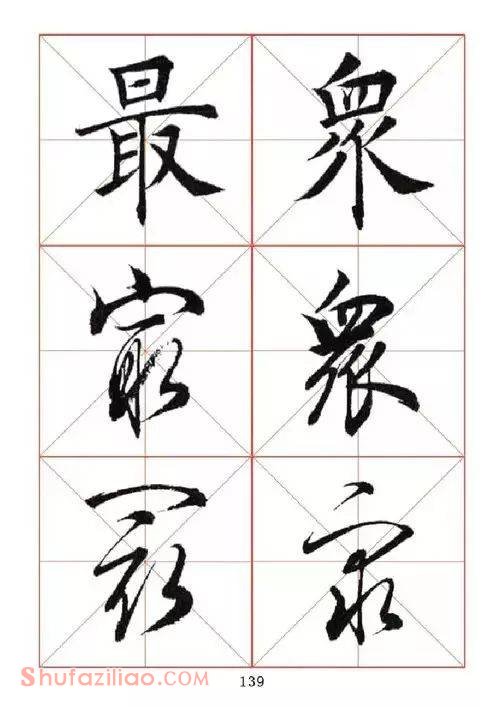 衆
衆
衆
最
最
最
Shufaziliao.com
139